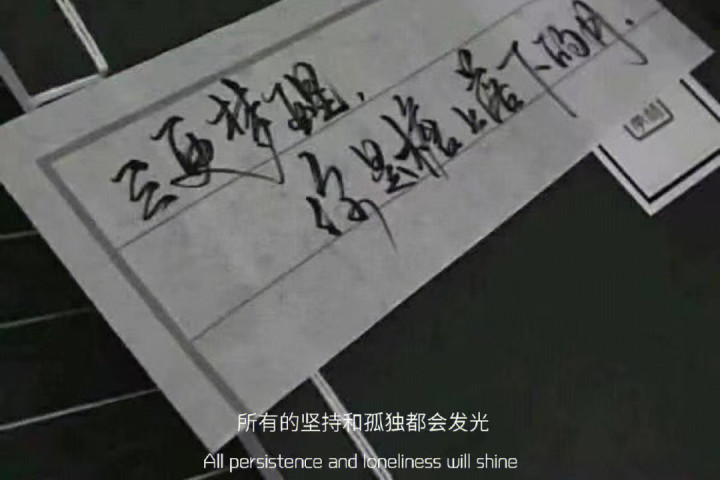 三更梦醒,
你是檐上落下的月.
所有的坚持和孤独都会发光
All persistence and loneliness will shine